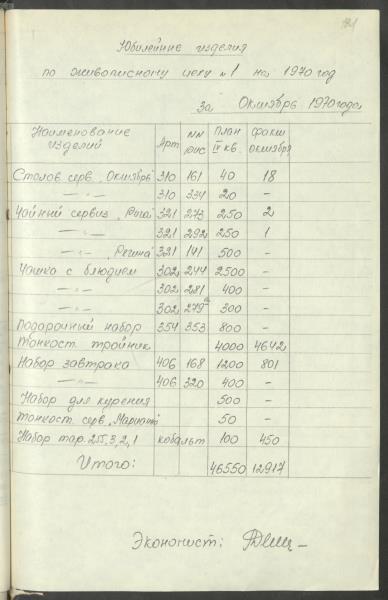 Юбилейные изделия
по живописному цеху № 1 на 1970 год
за Октябрь 1970 года
Наименование изделий Арт NN рис План IV кв. факт октября
Столов. серв. „Октябрь" 310 161 40 18
—"— 310 334 20 -
Чайный сервиз „Рига" 321 273 250 2
—"— 321 292 250 1
—"— „Регина" 321 141 500 -
Чашка с блюдцем 302 244 2500 -
—"— 302 281 400 -
—"— 302 279а 300 -
Подарочный набор 354 353 800 -
Тонкост. тройник 4000 4642
Набор завтрака 406 168 1200 801
—"— 406 320 400 -
Набор для курения 500 -
Тонкост. серв. 50 -
Набор тар. 255, 3, 2, 1 кобальт 100 450
Итого: 46550 12917
Экономист: